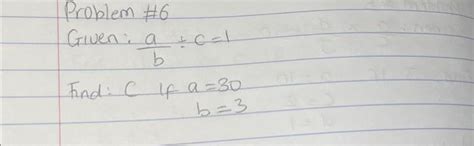 Problem #6
Given: a/b ÷ c=1
Find: C If a=30
b=3